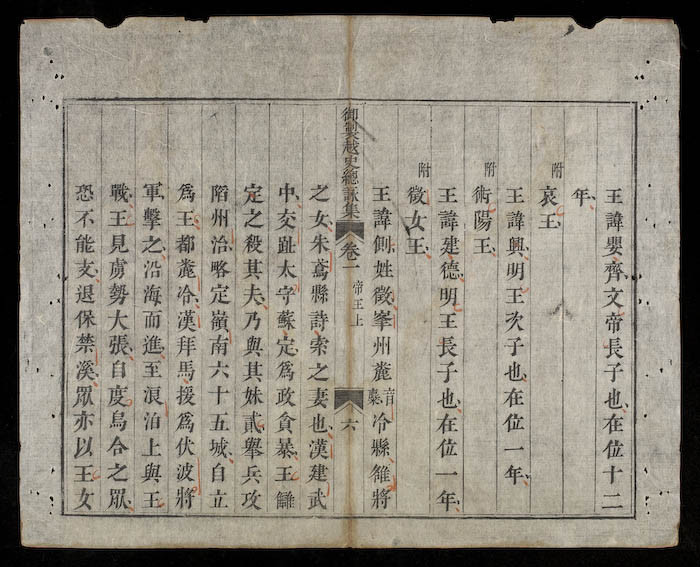 王諱嬰齊文帝長子也在位十二
年
附
哀王
王諱興明王次子也在位一年
附
術陽王
王諱建德明王長子也在位一年
附
徵女王
王諱側姓徵峯州麊音麋冷縣雒將
御製越史總詠集 卷一 帝王上 六
之女朱鳶縣詩索之妻也漢建武
中交趾太守蘇定爲政貪暴王讎
定之殺其夫乃與其妹貳舉兵攻
陷州治略定嶺南六十五城自立
爲王都麊冷漢拜馬援爲伏波將
軍擊之沿海而進至浪泊上與王
戰王見虜勢大張自度烏合之眾
恐不能支退保禁溪眾亦以王女